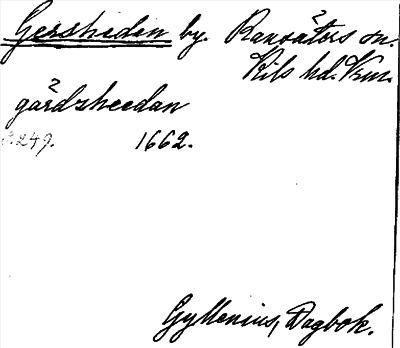 Gersheden by. Ransäters sn.
Kils hd. Krm.
gårdzheedan
s. 249. 1662.
Gyllenius, Dagbok.